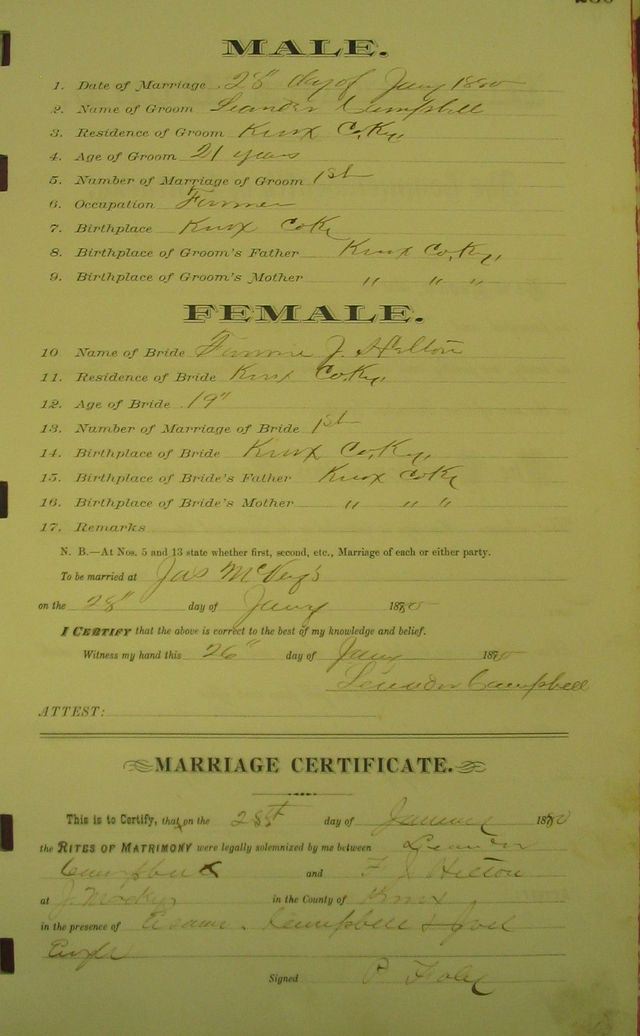 MALE.
1. Date of Marriage 28" day of Jany 1880
2. Name of Groom Leander Campbell
3. Residence of Groom Knox Co. Ky,,
4. Age of Groom 21 years
5. Number of Marriage of Groom 1st
6. Occupation Farmer
7. Birthplace Knox Co Ky
8. Birthplace of Groom's Father Knox Co. Ky,,
9. Birthplace of Groom's Mother " " "
FEMALE.
10 Name of Bride J. Hilton
11. Residence of Bride Knox Co. Ky,,
12. Age of Bride 19"
13. Number of Marriage of Bride 1st
14. Birthplace of Bride Knox Co. Ky,,
15. Birthplace of Bride's Father Knox Co Ky
16. Birthplace of Bride's Mother " " "
17. Remarks
N. B.—At Nos. 5 and 13 state whether first, second, etc., Marriage of each or either party.
To be married at Jas
on the 28" day of Jany 1880
I CERTIFY that the above is correct to the best of my knowledge and belief.
Witness my hand this 26" day of Jany 1880
Leander Campbell
ATTEST:
MARRIAGE CERTIFICATE.
This is to Certify, that on the 28th day of January 1880
the RITES OF MATRIMONY were legally solemnized by me between Leander
Campbell and F J Hilton
at J. in the County of Knox
in the presence of Campbell & Joel
Signed P. Foley